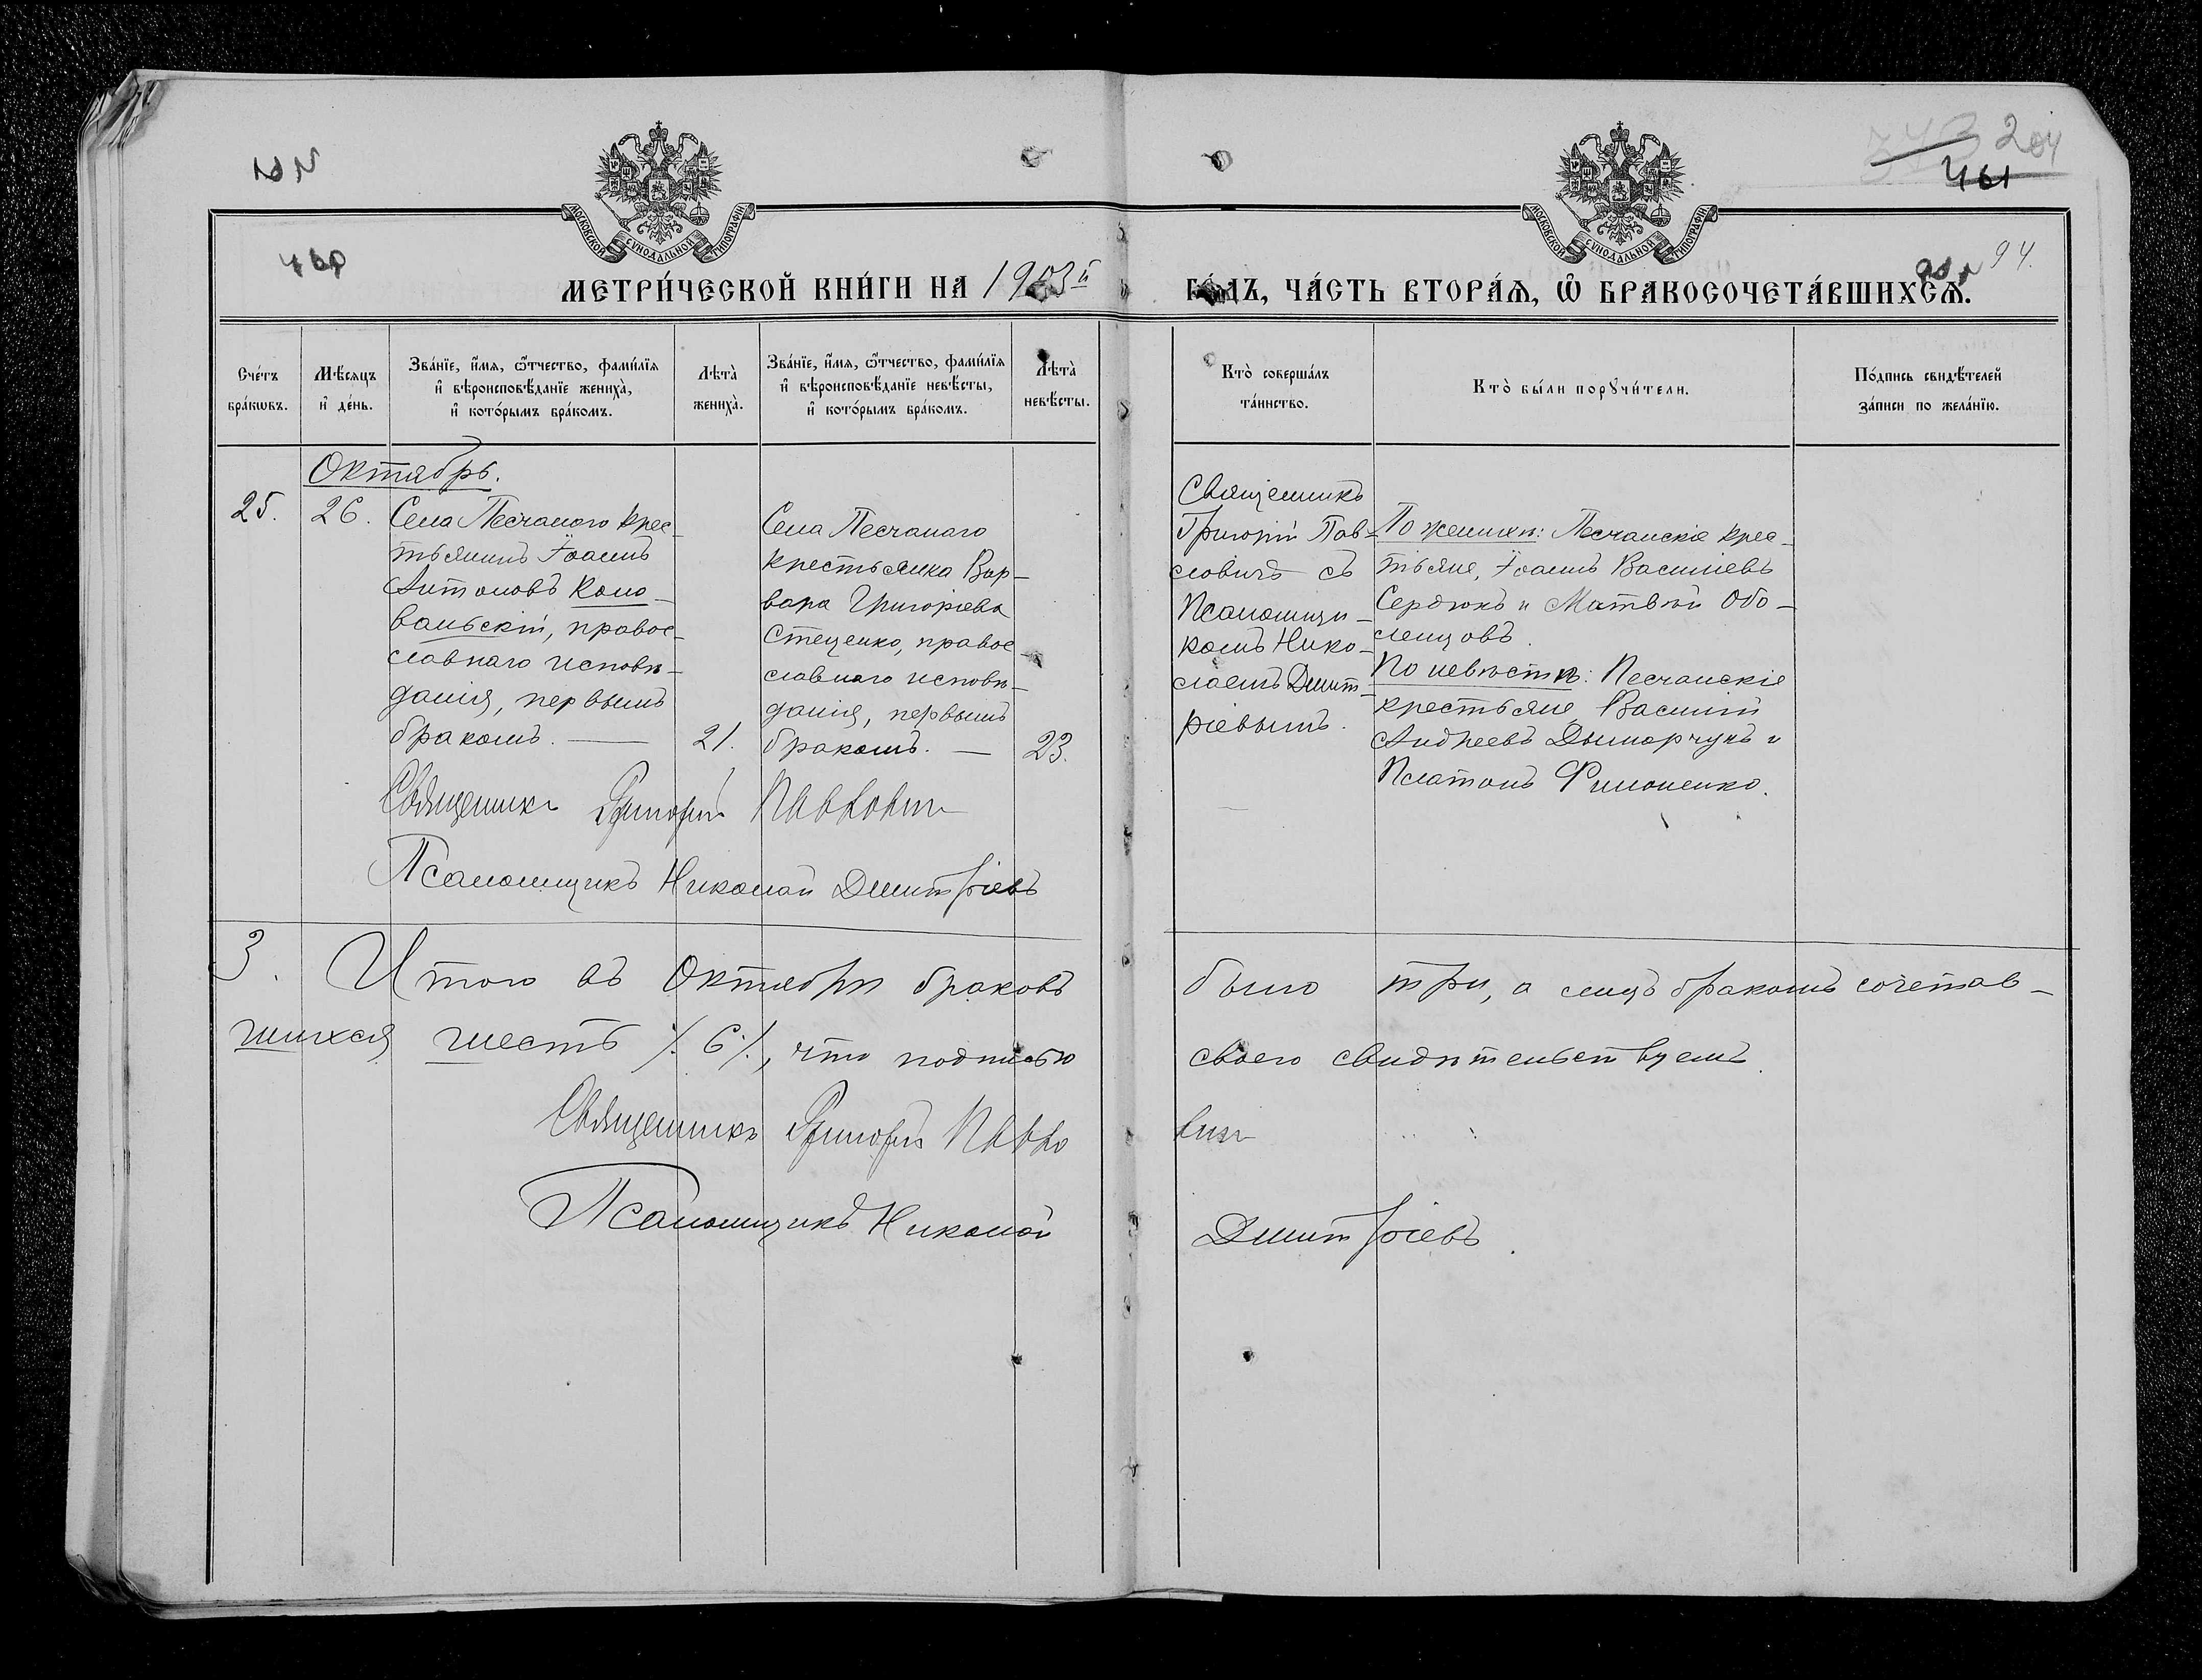 204
461
460
94.
МОСКОВСКОЙ СѴНОДАЛЬНОЙ ТИПОГРАФІИ
МОСКОВСКОЙ СѴНОДАЛЬНОЙ ТИПОГРАФІИ
МЕТРИ́ЧЕСКОЙ КНИ́ГИ НА 1903й ГО́ДЪ, ЧА́СТЬ ВТОРА́Я, Ѽ БРАКОСОЧЕТА́ВШИХСЯ.
Сче́тъ
бра́кωвъ.
Мѣ́сяцъ
и҆ де́нь.
Зва́нїе, и҆́мя, ѻ҆́тчество, фами́лїя
и҆ вѣроисповѣ́данїе жениха̀,
и҆ кото́рымъ бра́комъ.
Лѣта̀
жениха̀.
Зва́нїе, и҆́мя, ѻ҆́тчество, фами́лїя
и҆ вѣроисповѣ́данїе невѣ́сты,
и҆ кото́рымъ бра́комъ.
Лѣта̀
невѣ́сты.
Кто̀ соверша́лъ
та́инство.
Кто̀ бы́ли порꙋчи́тели.
По́дпись свидѣ́телей
за́писи по жела́нїю.
Октябрь.
25.
26.
Села Песчанаго крес-
тьянинъ Іоаннъ
Антоновъ Коно-
вальскій, правос-
славнаго исповѣ-
данія, первымъ
бракомъ. —
21.
Села Песчанаго
крестьянка Вар-
вара Григоріева
Стеценко, правос-
славнаго исповѣ-
данія, первымъ
бракомъ. —
23.
Священникъ
Григорій Пав-
ловичъ съ
Псаломщи-
комъ Нико-
лаемъ Дмит-
ріевымъ.
По женихѣ: Песчанскіе крес-
тьяне, Іоаннъ Василіевъ
Сердюкъ и Матвѣй Обо-
ленцовъ.
По невѣстѣ: Песчанскіе
крестьяне Василій
Андреевъ Дымарчукъ и
Платонъ Филоненко.
Священникъ Григорій Павловичъ
Псаломщикъ Николай Дмитріевъ
3. Итого въ Октябрѣ браковъ было три, а лицъ бракомъ сочетав-
шихся шесть /.6/., что подписью своего свидѣтельствуемъ.
Священникъ Григорій Павловичъ
Псаломщикъ Николай Дмитріевъ.